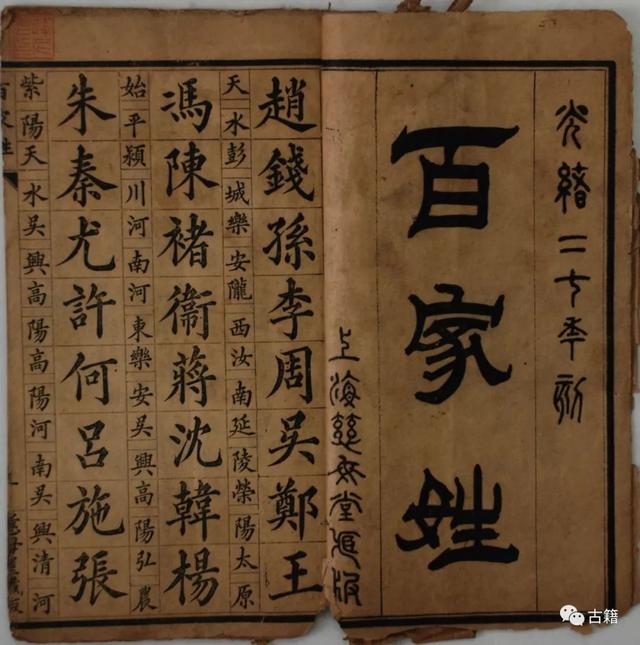 光緒二七年刻
百家姓
上海慈母堂版
趙錢孫李周吳鄭王
天水彭城樂安隴西汝南延陵榮陽太原
馮陳褚衛蔣沈韓楊
始平潁川河南河東樂安吳興高陽弘農
朱秦尤許何呂施張
紫陽天水吳興高陽高陽河南吳興清河
百家姓
古籍